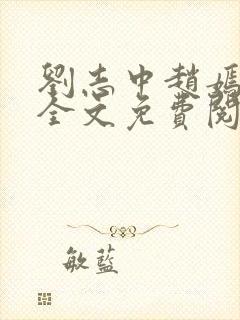 劉志中趙媽
全文免費閱
敏藍